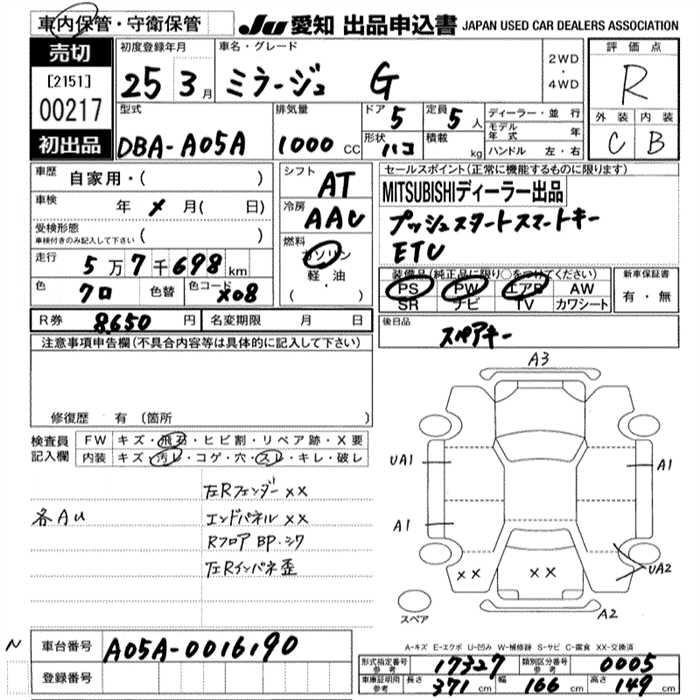 車内保管・守衛保管
JU 愛知 出品申込書 JAPAN USED CAR DEALERS ASSOCIATION
売切
[2151]
00217
初出品
初度登録年月
25 3月
車名・グレード
ミラージュ G
2WD
・
4WD
評価点
R
外装 内装
C B
型式
DBA-A05A
排気量
1000 CC
ドア
5
定員
5人
形状
ハコ
積載
kg
ディーラー・並行
モデル年式 年
ハンドル 左・右
車歴 自家用・( )
車検 年 〆 月( 日)
受検形態
車検付きのみ記入して下さい ( )
走行 5万7千698km
色 クロ 色替 色コード X08
シフト
AT
冷房
AAC
燃料
ガソリン
軽・油
( ・ )
R券 8,650 円 名変期限 月 日
セールスポイント(正常に機能するものに限ります)
MITSUBISHIディーラー出品
プッシュスタートスマートキー
ETC
装備品(純正品に限り○をつけてください)
PS PW エアB AW
SR ナビ TV カワシート
新車保証書
有・無
後日品
スペアキー
注意事項申告欄(不具合内容等は具体的に記入して下さい)
修復歴 有 (箇所
検査員記入欄
FW キズ・飛石・ヒビ割・リペア跡・X要
内装 キズ・汚レ・コゲ・穴・スレ・キレ・破レ
各AU
左Rフェンダー XX
エンドパネル XX
Rフロア BP・シワ
左Rインパネ歪
A3
UA1
A1
A1
XX
XX
UA2
A2
スペア
A-キズ E-エクボ U-凹み W-補修跡 S-サビ C-腐食 XX-交換済
N
車台番号 A05A-0016190
登録番号
形式指定番号
参考
17327
類別区分番号
参考
0005
車庫証明用
参考
長さ 371cm 幅 166cm 高さ 149cm